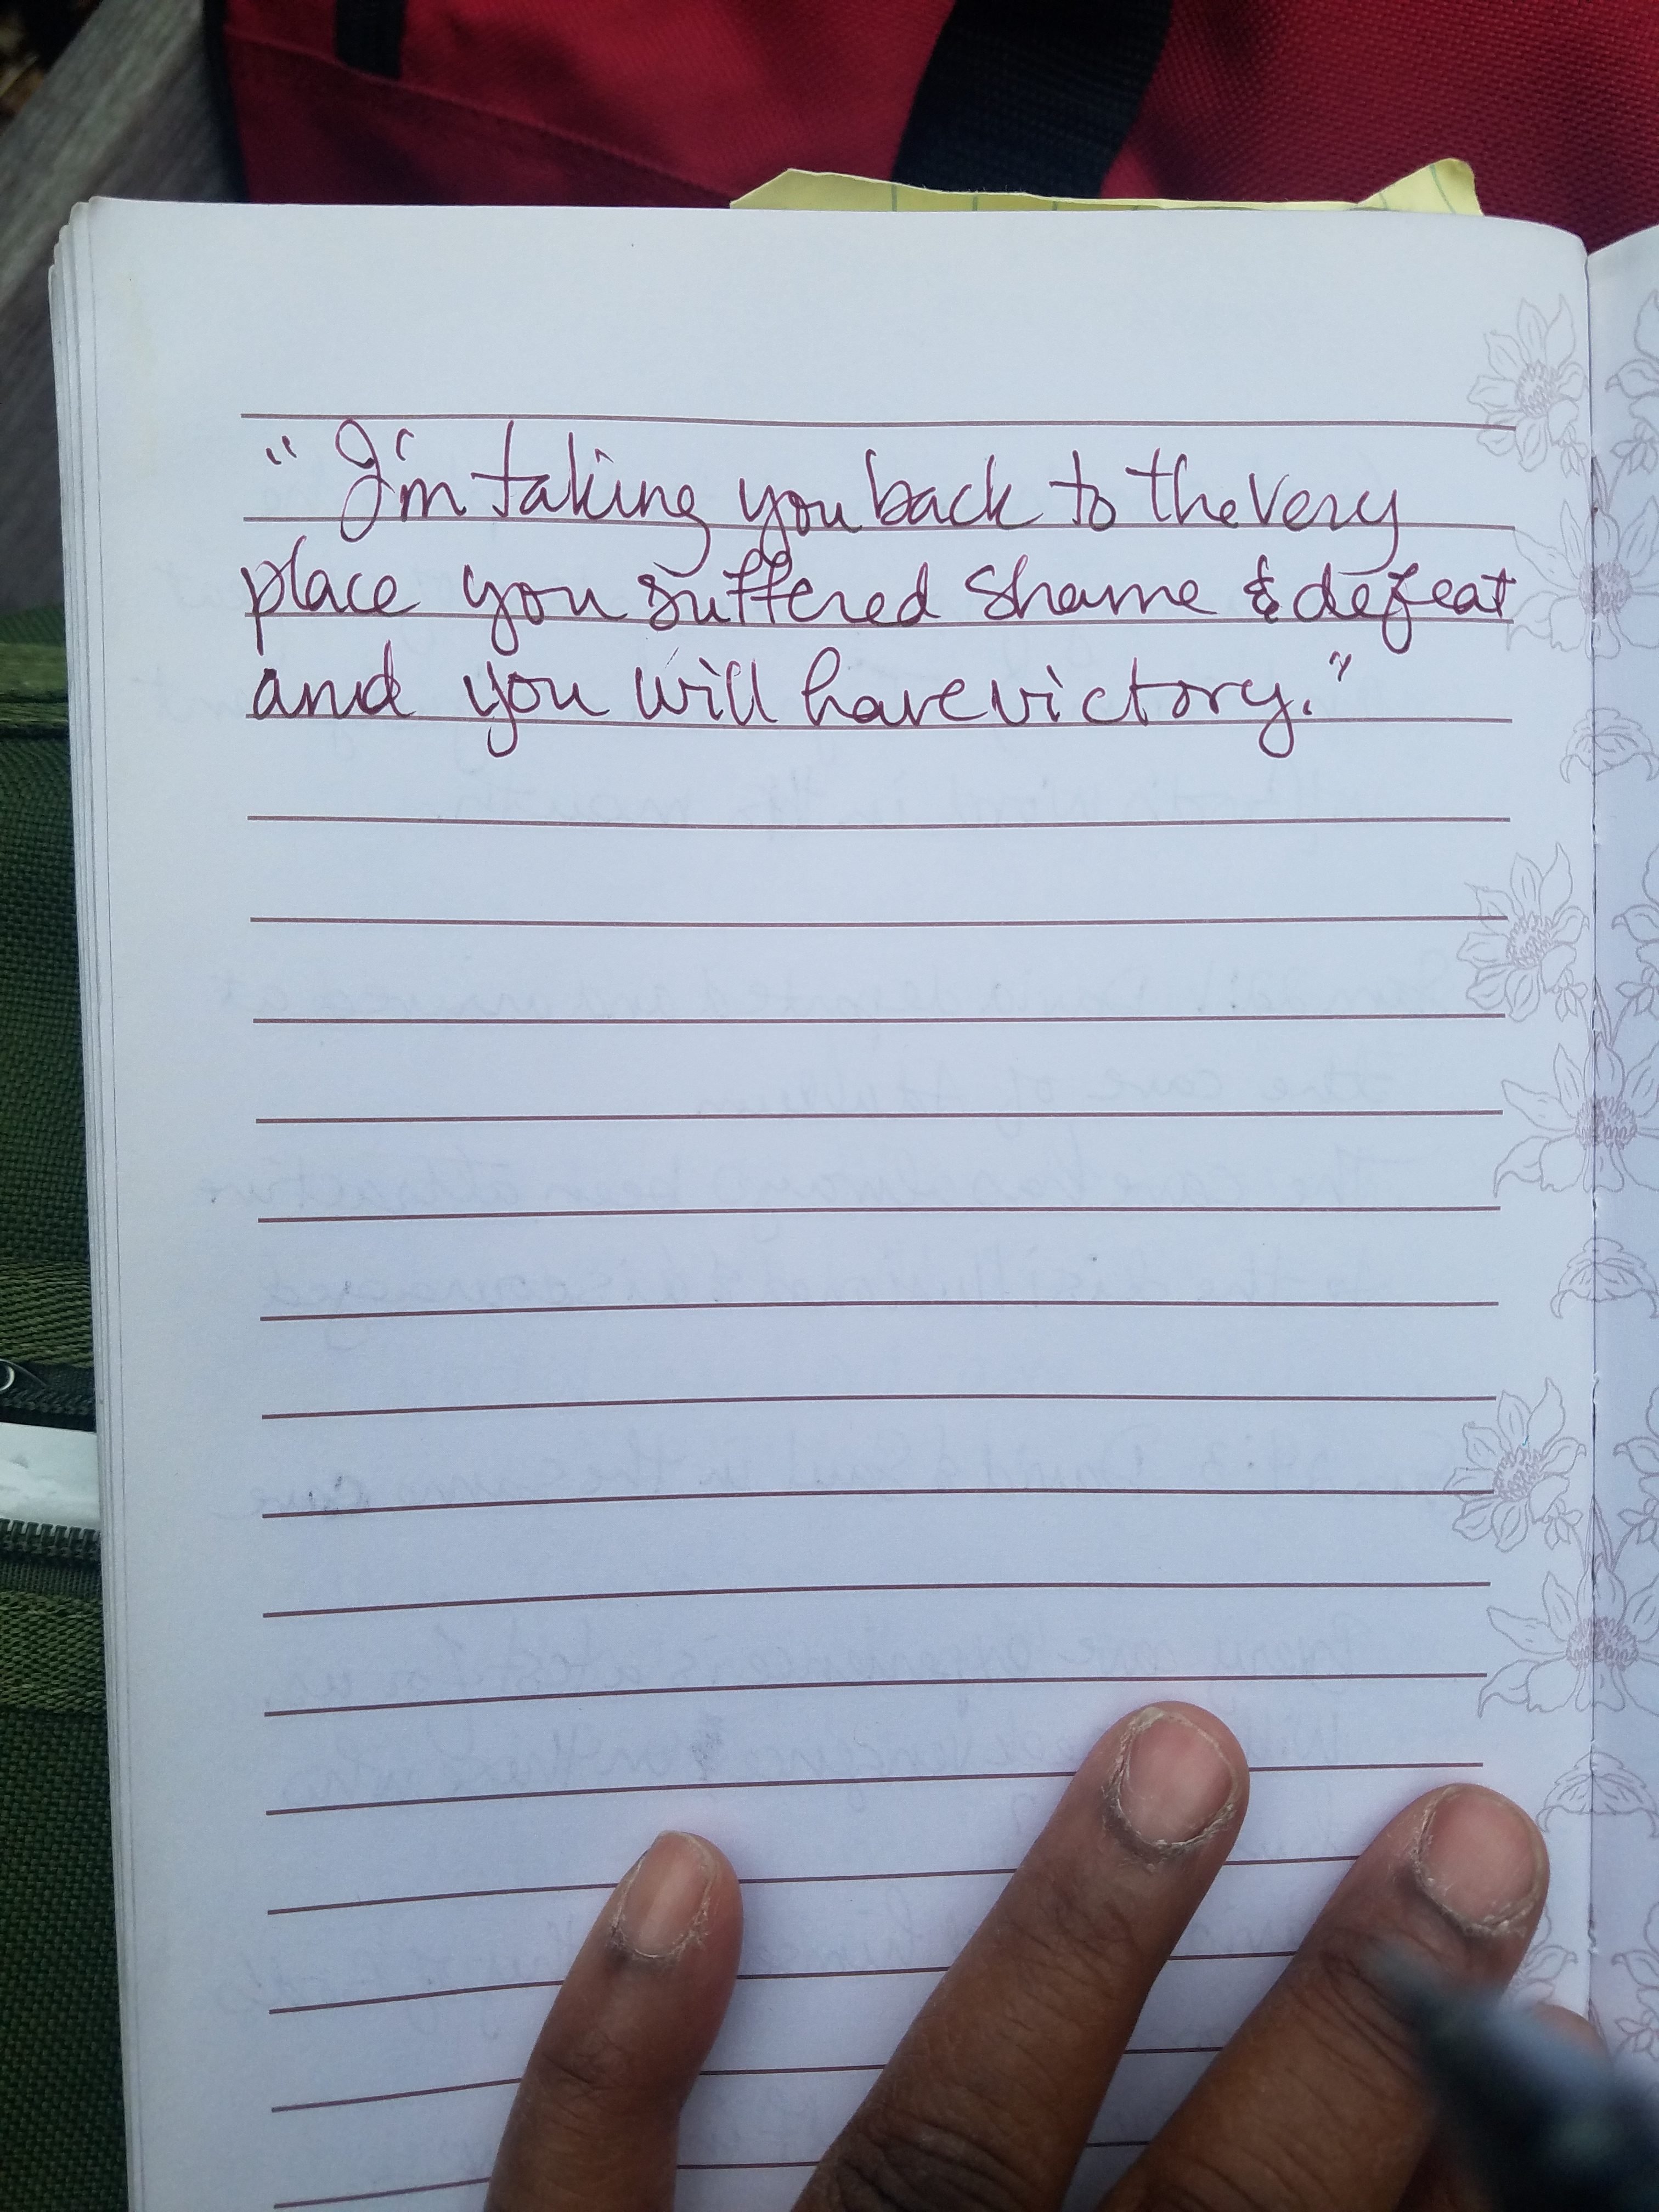 "I'm taking you back to the very
place you suffered shame & defeat
and you will have victory."